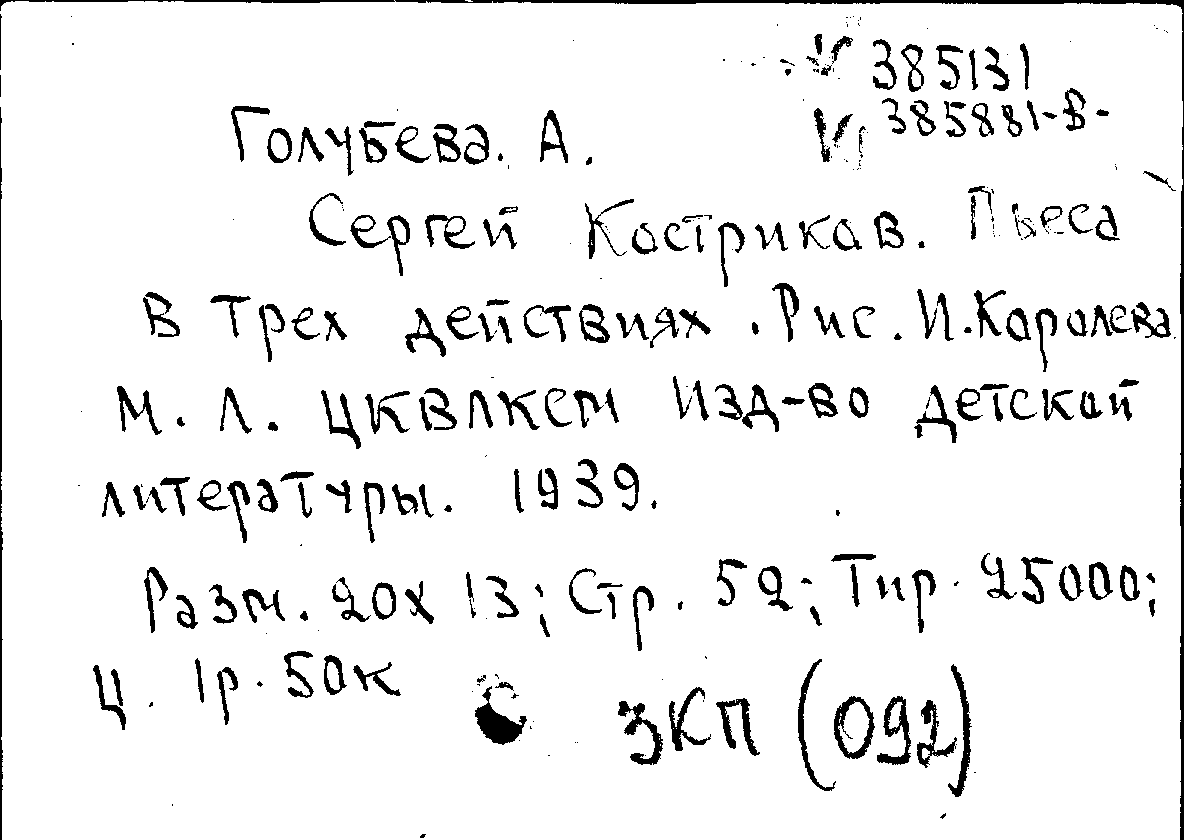 V 385131
V 385881-В-
Голубева. А.
Сергей Костриков. Пьеса
в трех действиях. Рис. И. Королева
М. Л. ЦКВЛКСМ Изд-во детской
литературы. 1939.
Разм. 20х13; Стр. 52; Тир. 25000;
Ц. 1р. 50к
ЗКП (092)